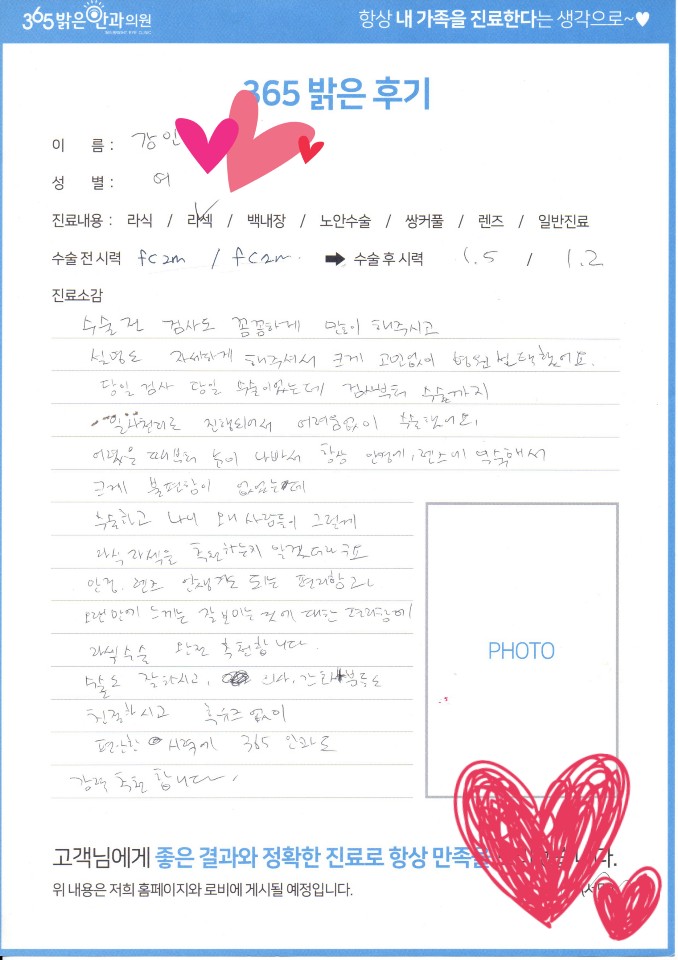 365 밝은 안과의원
항상 내 가족을 진료한다는 생각으로~♥
365 밝은 후기
이 름 : 강인
성 별 : 여
진료내용 : 라식 / 라섹 / 백내장 / 노안수술 / 쌍커풀 / 렌즈 / 일반진료
수술 전 시력 fc2m / fc2m. ➡ 수술 후 시력 1.5 / 1.2
진료소감
수술전 검사도 꼼꼼하게 많이 해주시고
설명도 자세하게 해주셔서 크게 고민없이 병원 선택했어요.
당일 검사 당일 수술이었는데 검사부터 수술까지
일사천리로 진행되어서 어려움없이 수술했어요.
어렸을 때부터 눈이 나빠서 항상 안경에, 렌즈에 익숙해서
크게 불편함이 없었는데
수술하고 나니 왜 사람들이 그렇게
라식 라섹을 추천하는지 알겠더라구요
안경, 렌즈 안챙겨도 되는 편리함과
오랜만에 느끼는 잘 보이는 것에 대한 편리함에
라식수술 완전 추천합니다.
수술도 잘하시고, 의사, 간호사분들도
친절하시고 후유증 없이
편안한 시력에 365 안과도
강력 추천 합니다.
PHOTO
고객님에게 좋은 결과와 정확한 진료로 항상 만족을
위 내용은 저희 홈페이지와 로비에 게시될 예정입니다.